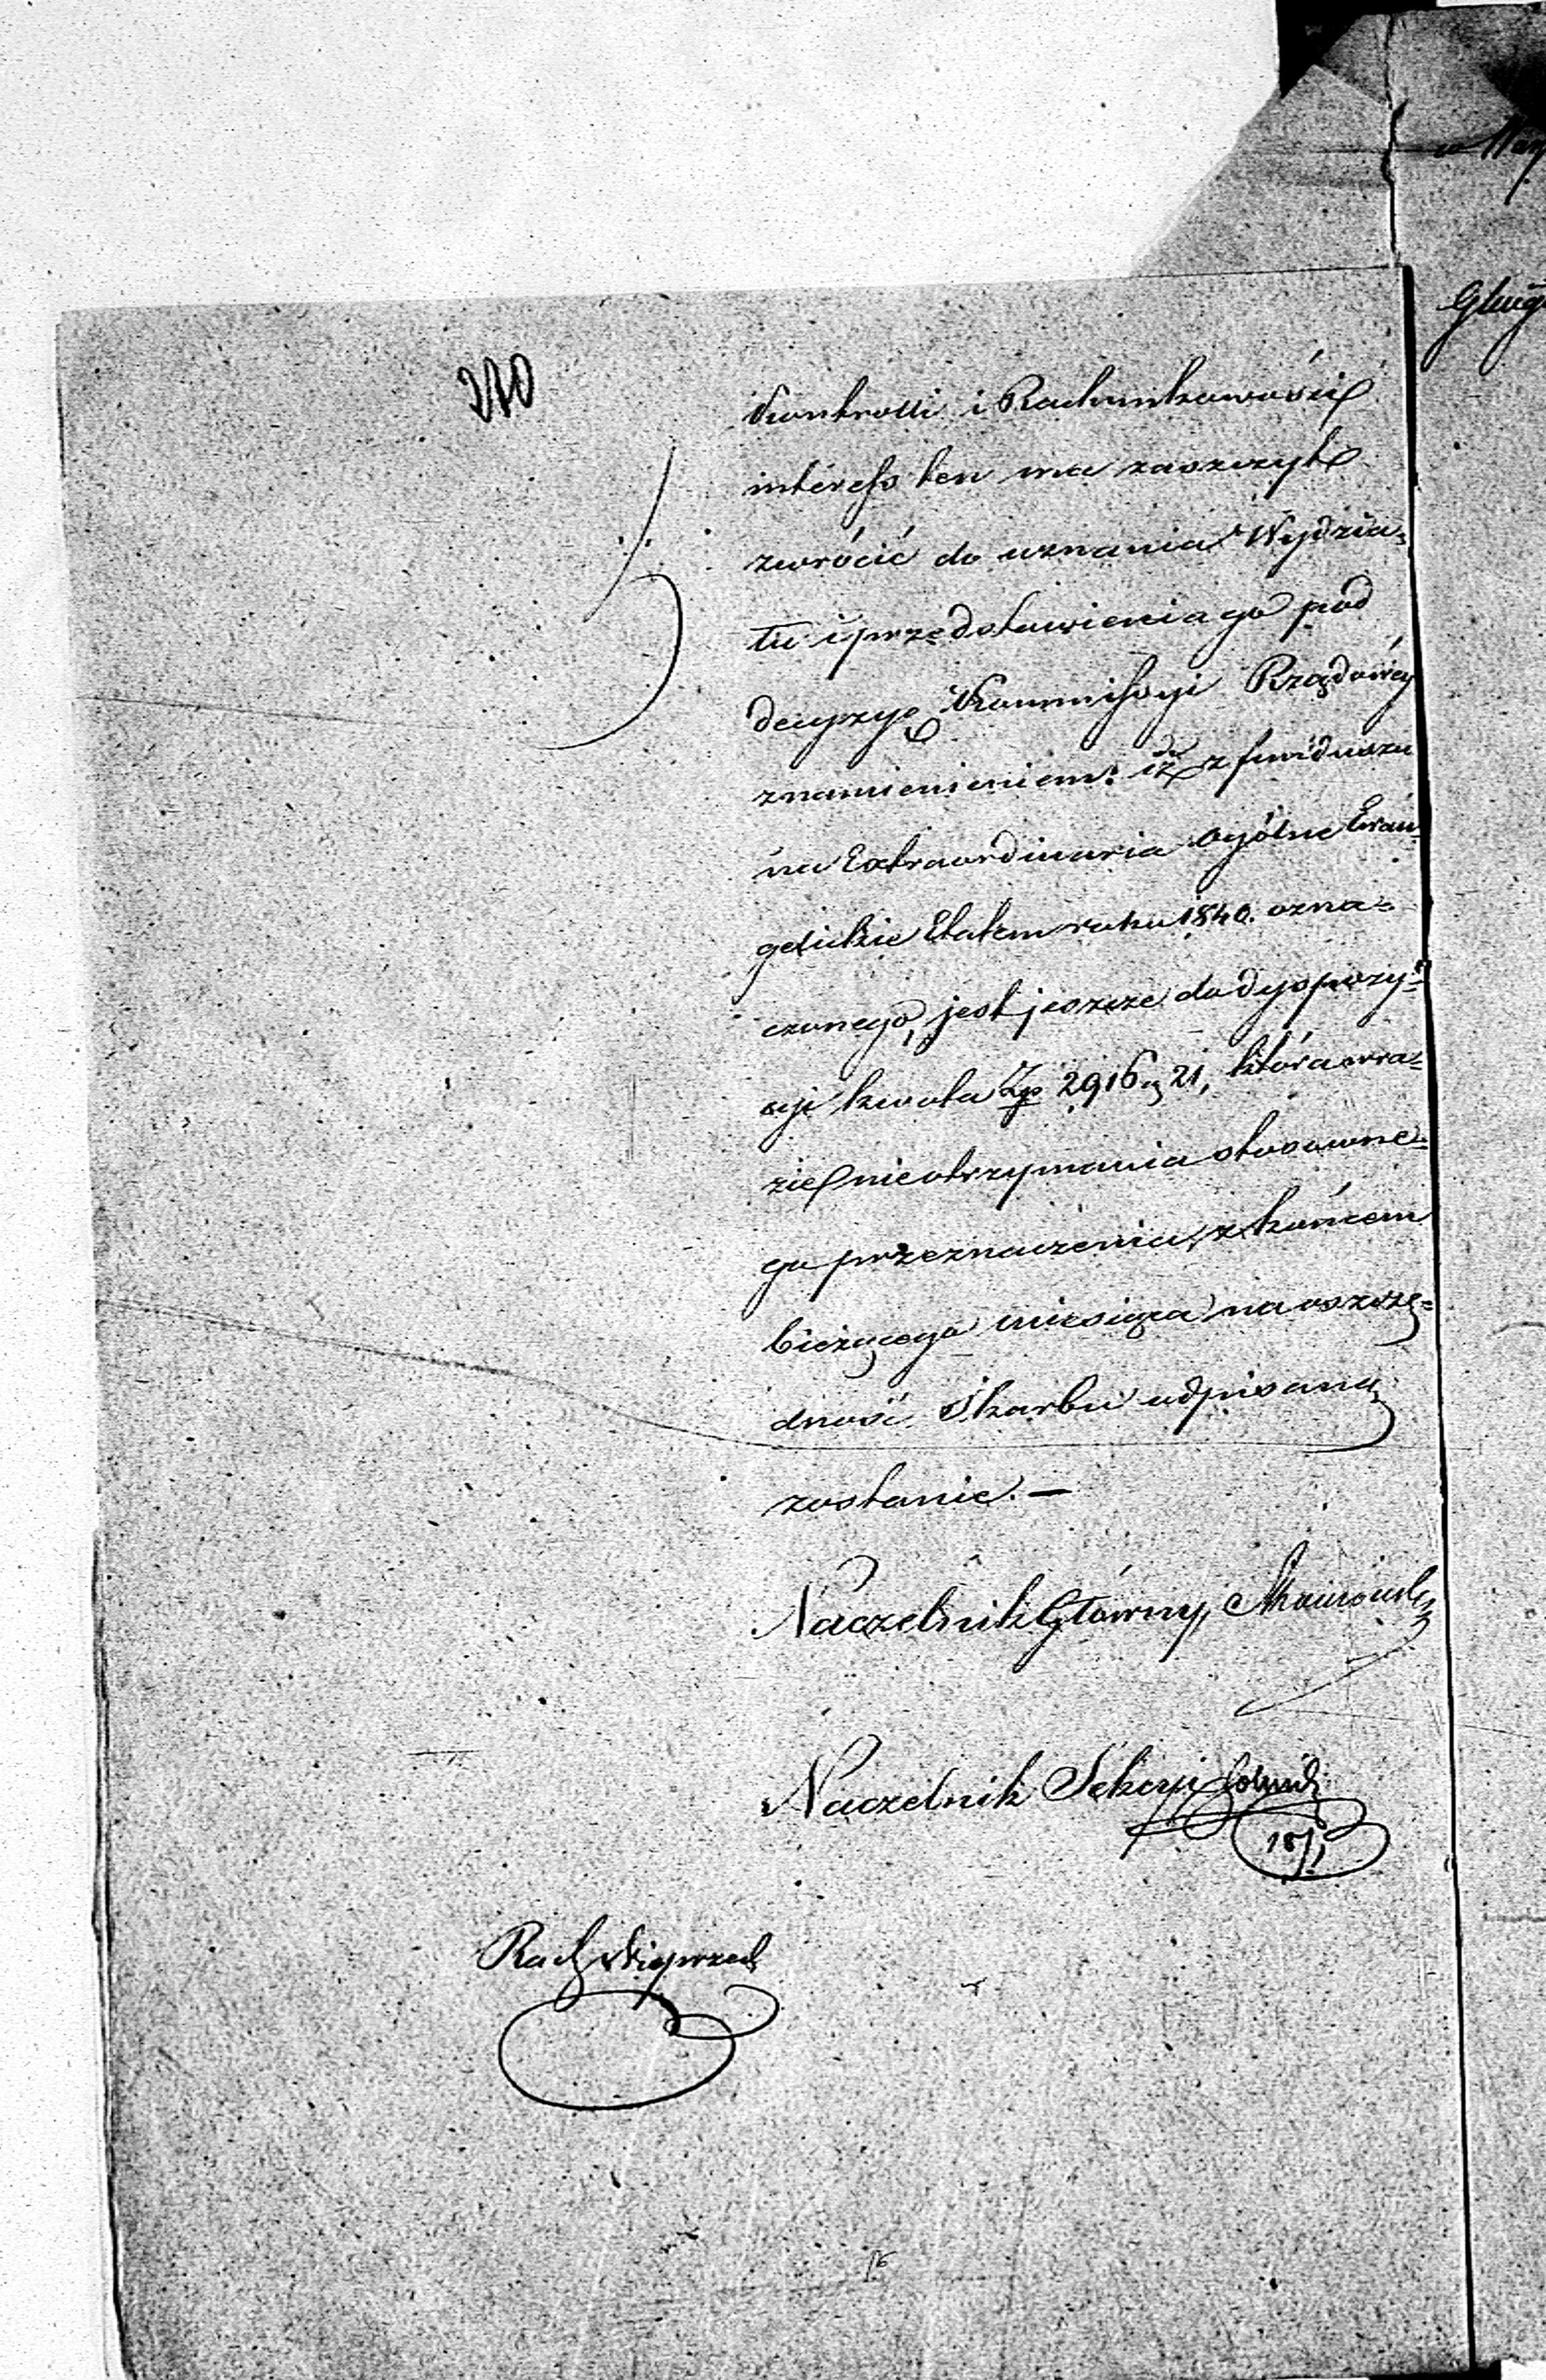 210
Kontrolli i Rachunkowości
interess ten ma zaszczyt
zwrócić do uznania Wydzia=
łu i przedstawienia go pod
decyzyę Kommissyi Rządowéy
znamienieniem: iż z funduszu
na Extraordinaria ogólne Ewan
gelickie Etatem roku 1840. ozna=
czonego, jest jeszcze do dyspozy=
cyi kwota Zp 2916 g 21, która w ra=
zie nieotrzymania stosowne=
go przeznaczenia, z końcem
bieżącego miesiąca na oszczę=
dność Skarbu odpisaną
zostanie. —
Naczelnik Główny,
Naczelnik Sekcyi
Rach